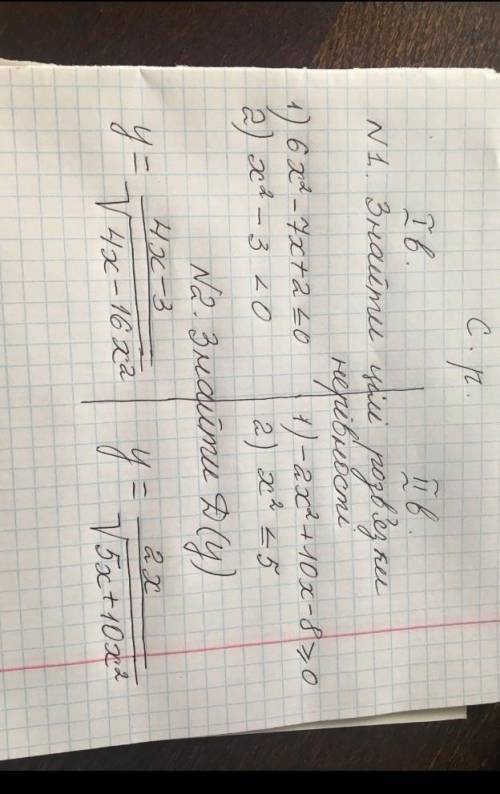 С. р.
I в. II в.
N1. Знайти цілі розв'язки
нерівності
1) 6x² - 7x + 2 ≤ 0 1) -2x² + 10x - 8 ≥ 0
2) x² - 3 < 0 2) x² ≤ 5
N2. Знайти D(y)
y = (4x - 3)/√(4x - 16x²) y = 2x/√(5x + 10x²)